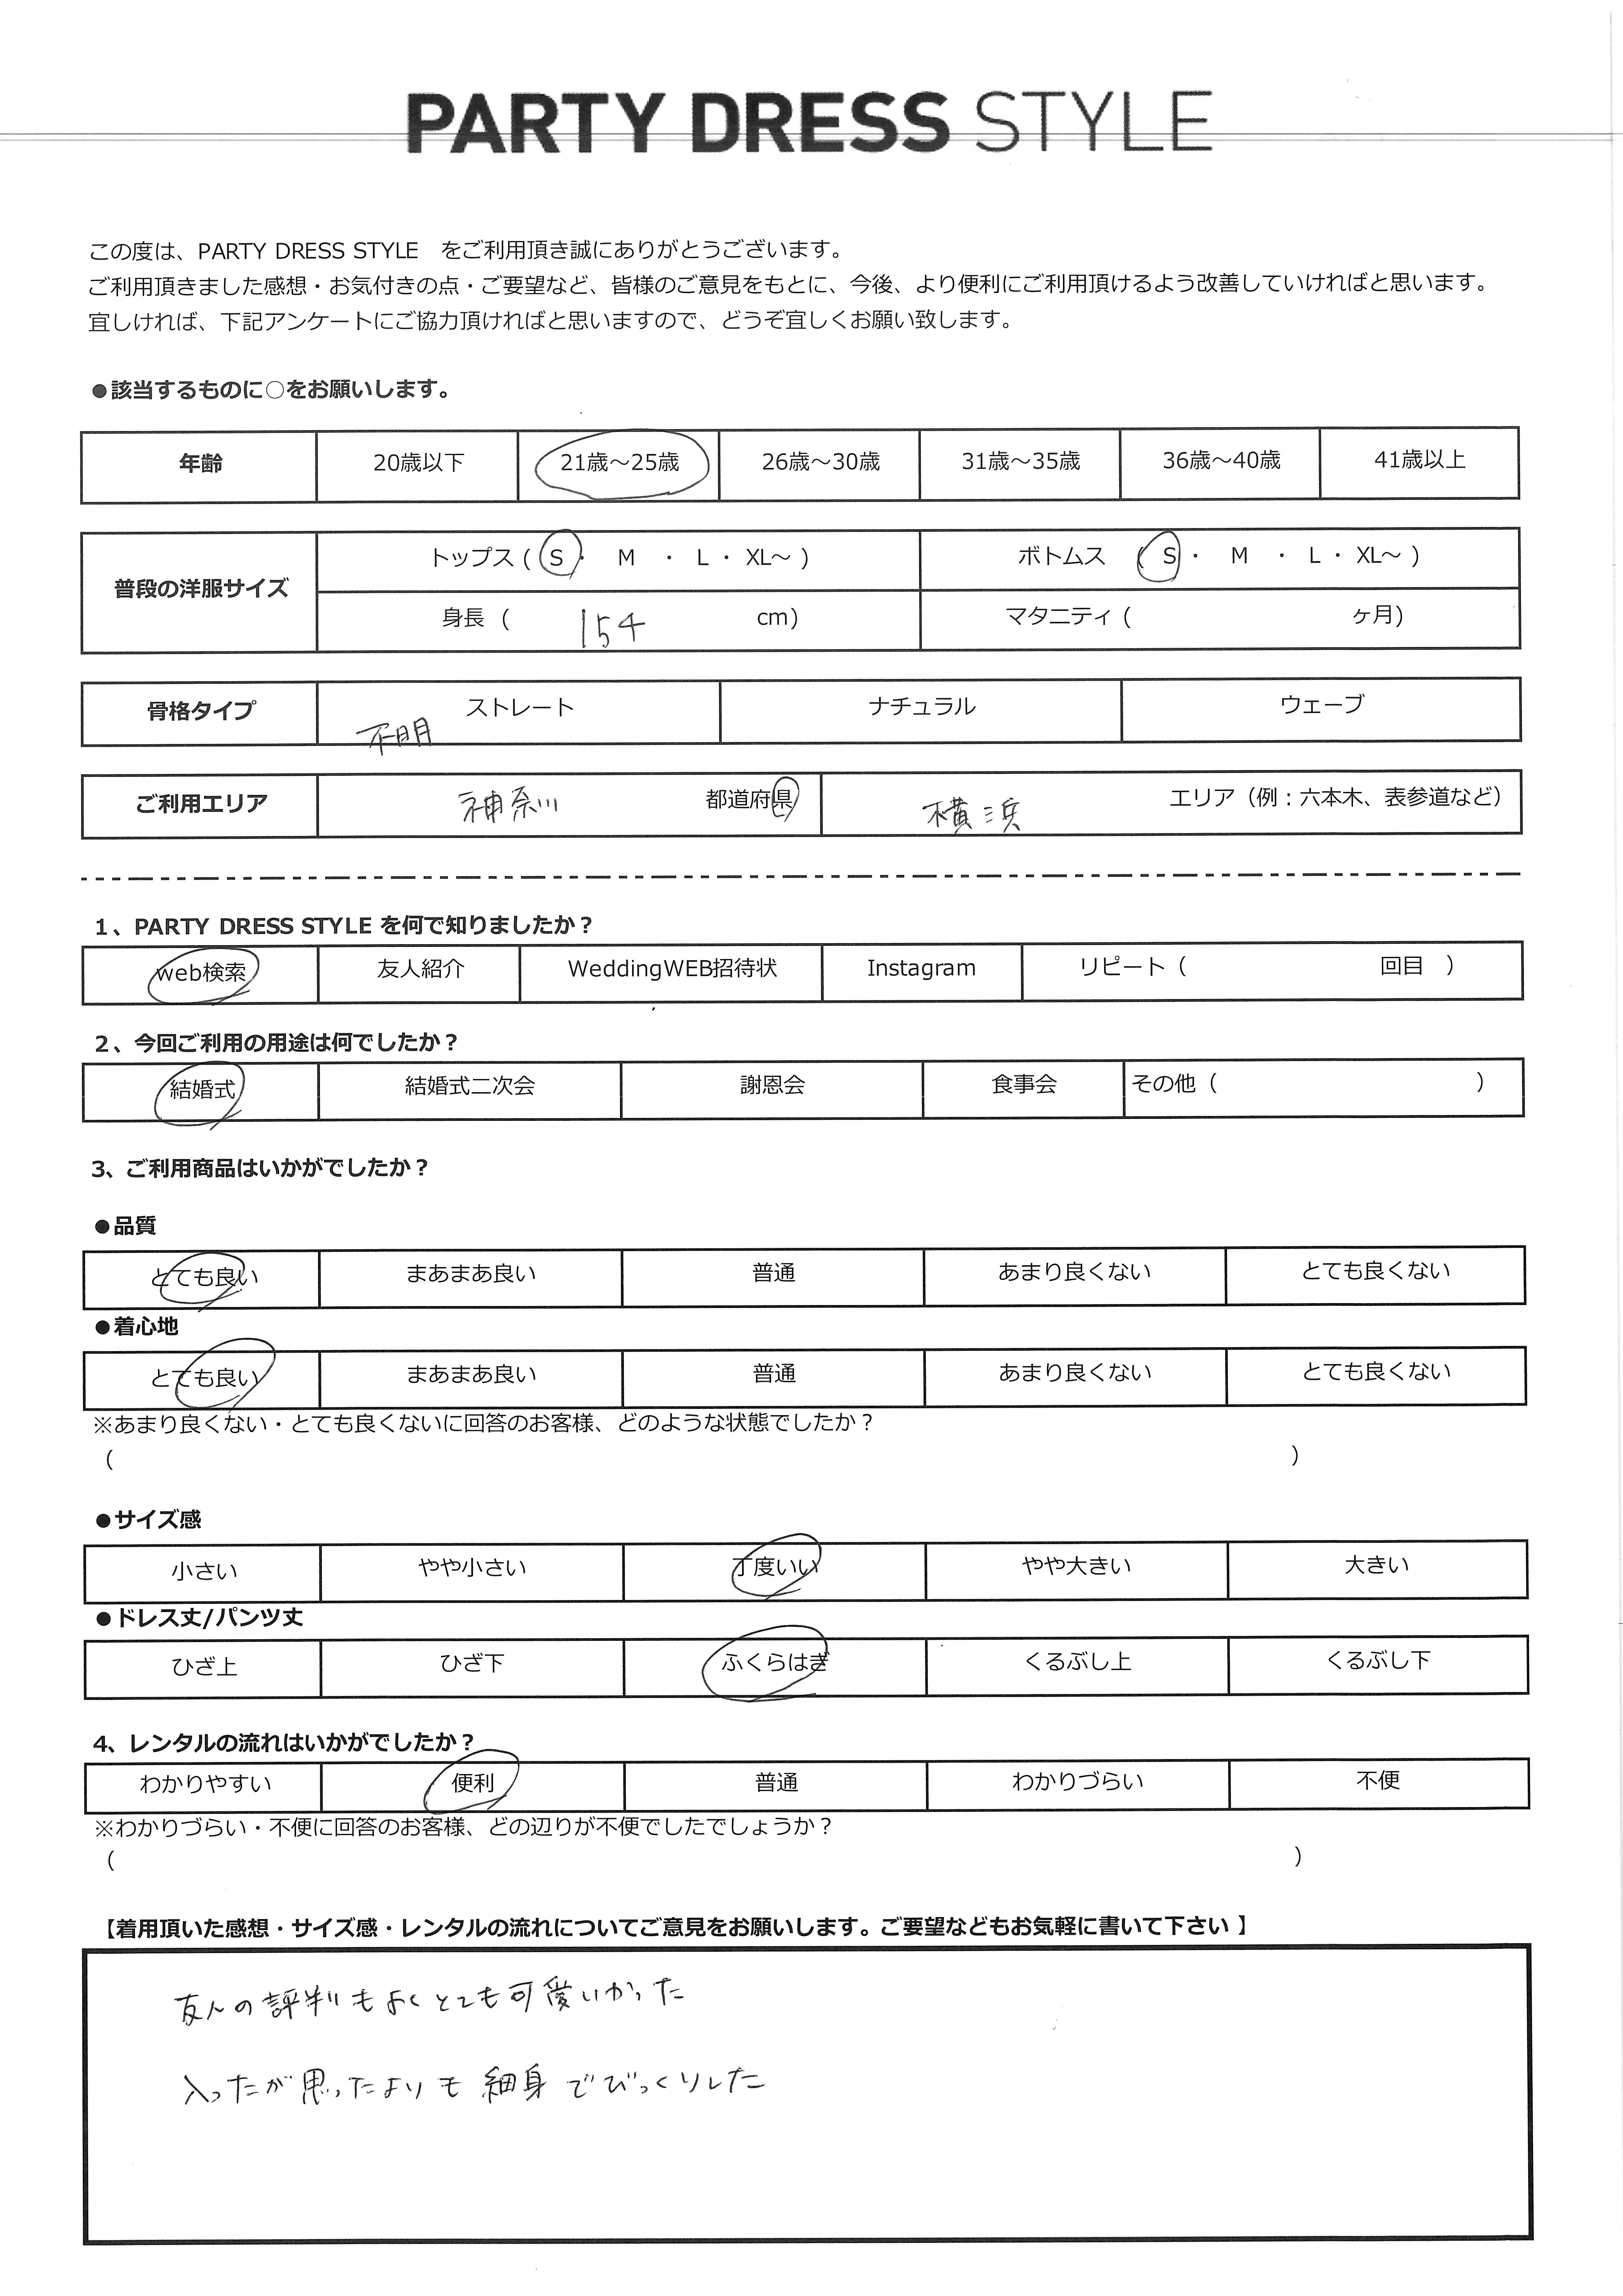 PARTY DRESS STYLE
この度は、PARTY DRESS STYLE　をご利用頂き誠にありがとうございます。
ご利用頂きました感想・お気付きの点・ご要望など、皆様のご意見をもとに、今後、より便利にご利用頂けるよう改善していければと思います。
宜しければ、下記アンケートにご協力頂ければと思いますので、どうぞ宜しくお願い致します。
●該当するものに○をお願いします。
年齢 20歳以下 21歳～25歳 26歳～30歳 31歳～35歳 36歳～40歳 41歳以上
普段の洋服サイズ トップス ( S ・ M ・ L ・ XL～ ) ボトムス ( S ・ M ・ L ・ XL～ )
身長 ( 154 cm) マタニティ ( ヶ月)
骨格タイプ ストレート ナチュラル ウェーブ
不明
ご利用エリア 神奈川 都道府県 横浜 エリア（例：六本木、表参道など）
1、PARTY DRESS STYLE を何で知りましたか？
web検索 友人紹介 WeddingWEB招待状 Instagram リピート（ 回目 ）
2、今回ご利用の用途は何でしたか？
結婚式 結婚式二次会 謝恩会 食事会 その他（ ）
3、ご利用商品はいかがでしたか？
●品質
とても良い まあまあ良い 普通 あまり良くない とても良くない
●着心地
とても良い まあまあ良い 普通 あまり良くない とても良くない
※あまり良くない・とても良くないに回答のお客様、どのような状態でしたか？
（ ）
●サイズ感
小さい やや小さい 丁度いい やや大きい 大きい
●ドレス丈/パンツ丈
ひざ上 ひざ下 ふくらはぎ くるぶし上 くるぶし下
4、レンタルの流れはいかがでしたか？
わかりやすい 便利 普通 わかりづらい 不便
※わかりづらい・不便に回答のお客様、どの辺りが不便でしたでしょうか？
（ ）
【着用頂いた感想・サイズ感・レンタルの流れについてご意見をお願いします。ご要望などもお気軽に書いて下さい 】
友人の評判もよくとても可愛いかった
入ったが思ったよりも細身でびっくりした